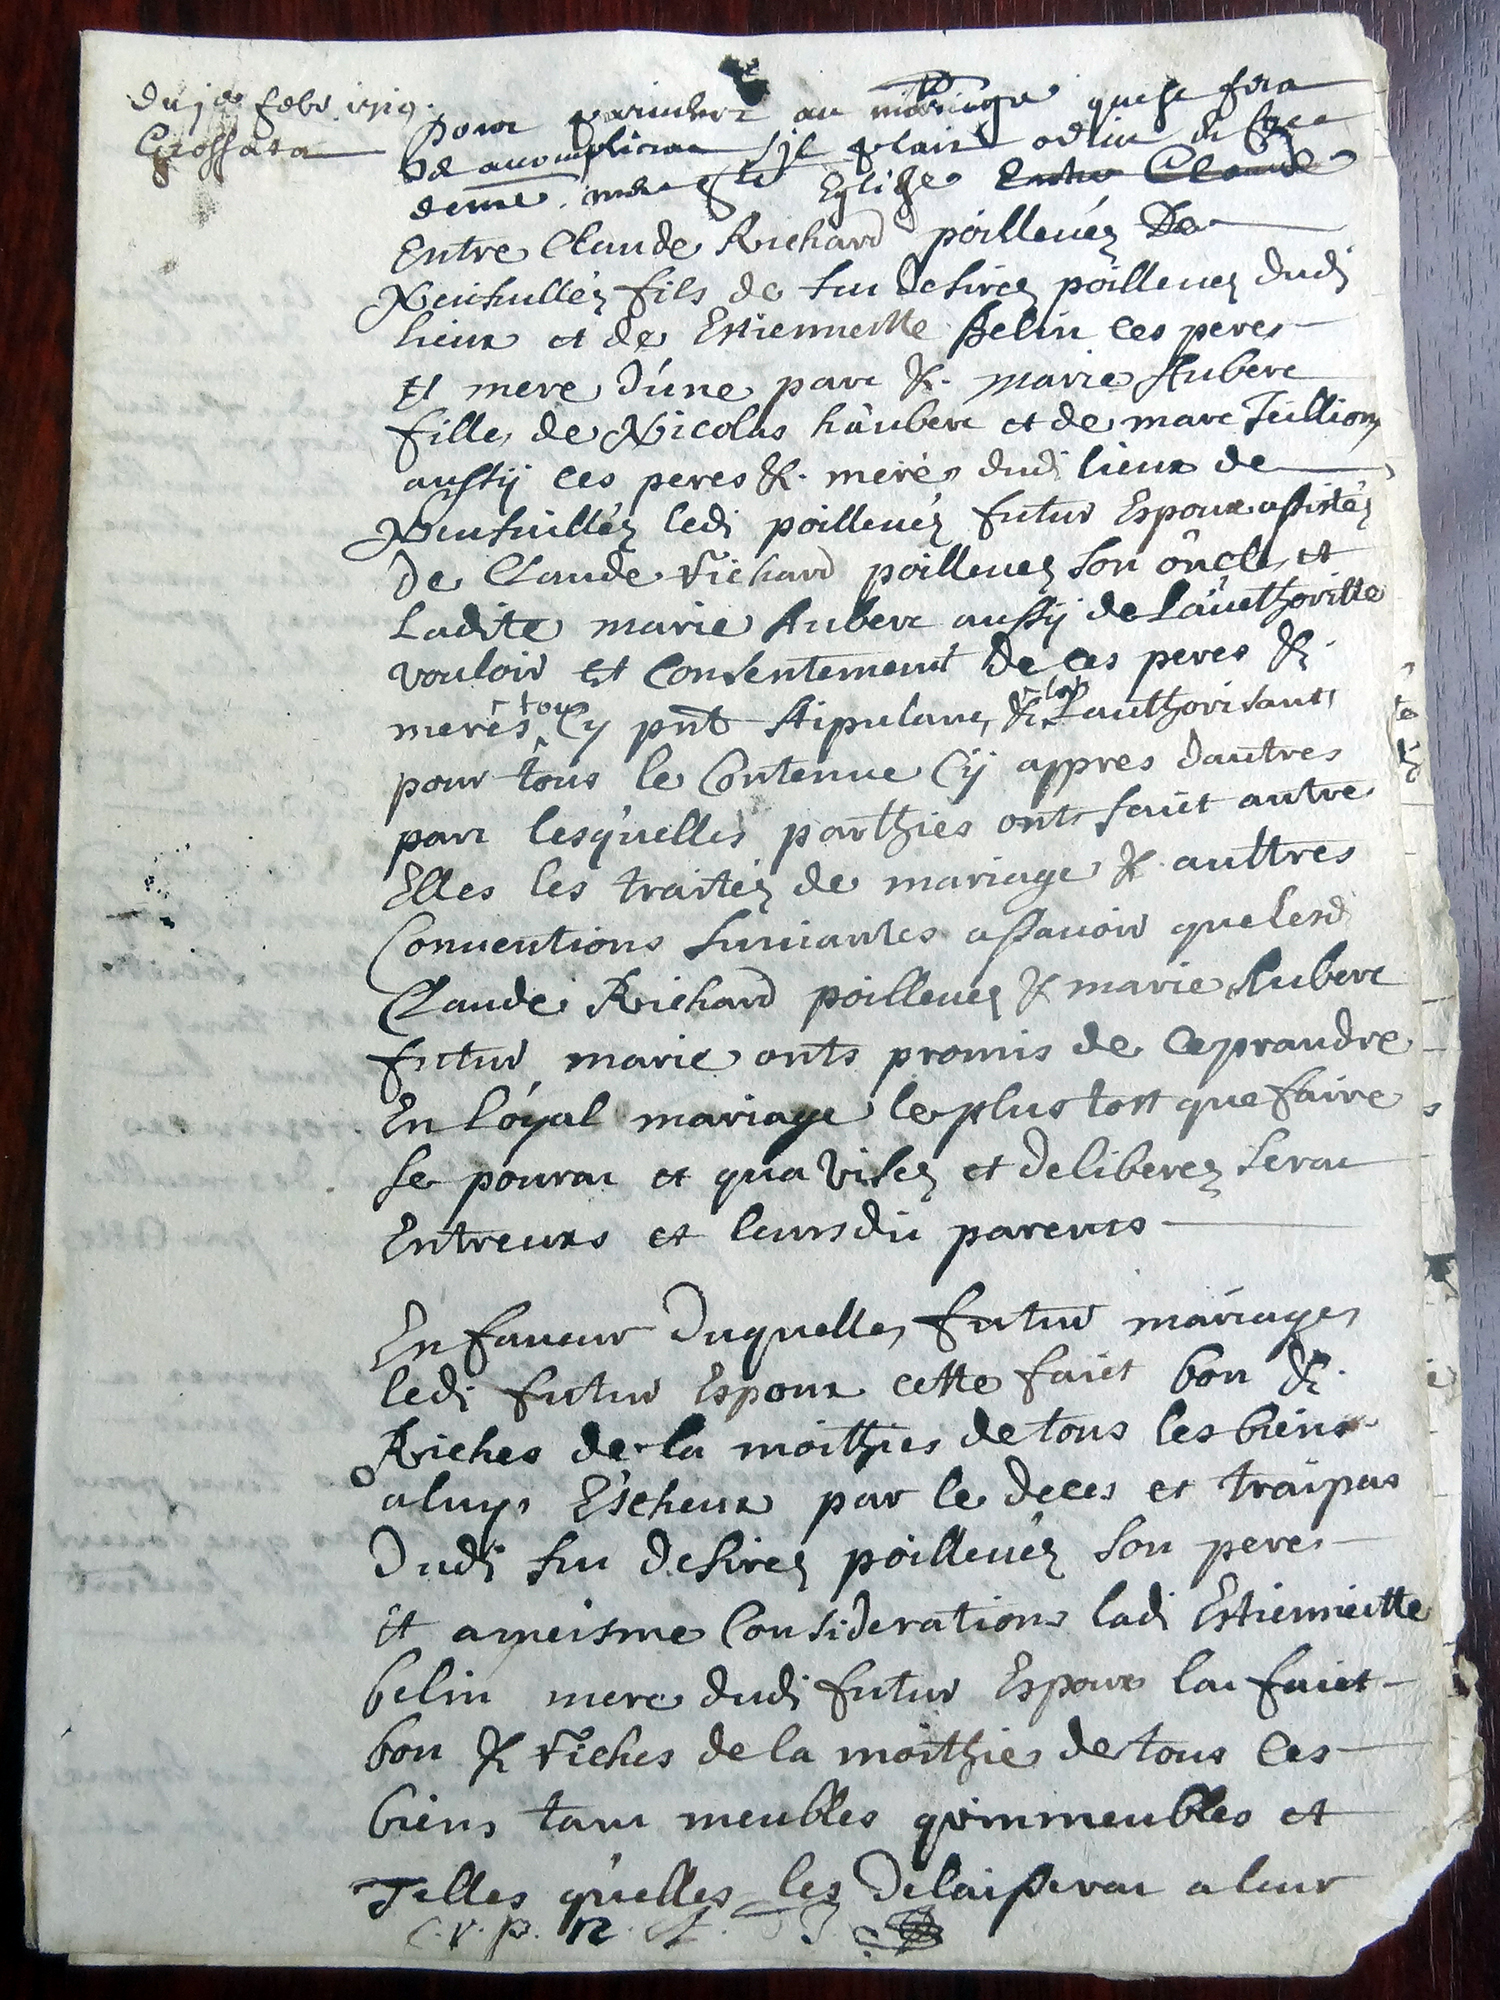 Du 1er febv. 1719.
Grossata
pour parvenir au mariage que se fera
Et acomplirat s'il plait a dieu En face
de nre. mere Ste Eglise Entre Claude
Entre Claude Richard poillevéz De
Neufvilléz fils de fut desirez poillevez dudi
lieux et de Estiennette belin ces peres
Et mere d'une part &. marie Aubert
fille de Nicolas hâubert et de marc Jullion
aussÿ ces peres &. meres dudi lieux de
Neufvilléz ledi poillevéz futur Espoux assistéz
De Claude richard poillevez son oncle et
Ladite marie Aubert aussÿ de L'authoritte
vouloir Et Consentement de ces peres &.
meres tous Cy pnt Stipulant & L'authorisants
pour tous le Contenue Cÿ appres dautres
part lesquelles parthies onts faict autre
Elles les traitéz de mariage & aultres
Conventions suivantes assavoir que lesd
Claude Richard poillevez & marie Aubert
futur marie onts promis de ce prandre
En lóyal mariage le plus tost que faire
se pourat et qua visez et deliberez serat
Entreuxs et leursdit parents
En faveur duquelle futur máriage
ledi futur Espoux cette faict bon &.
Riches de la moithies de tous les biens
a luy Escheux par le deces et traipas
Dudi fut desirez poillevéz son pere
Et a meisme Considerations ladi Estienneitte
belin mere dudi futur Espoux lat faict
bon & riches de la moithies de tous ces
biens tant meubles qu'immeubles et
Telles quelles les delaisserat a leur
C. r. p.